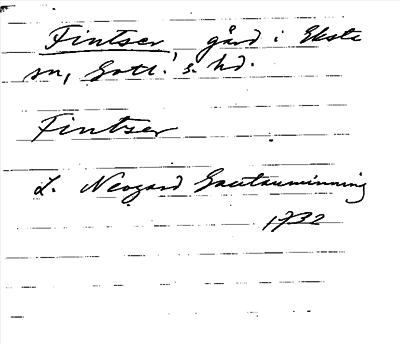 Fintser, gård i Eksta
sn, Gotl. s. hd.
Fintser
L. Neogard Gautauminning
1732